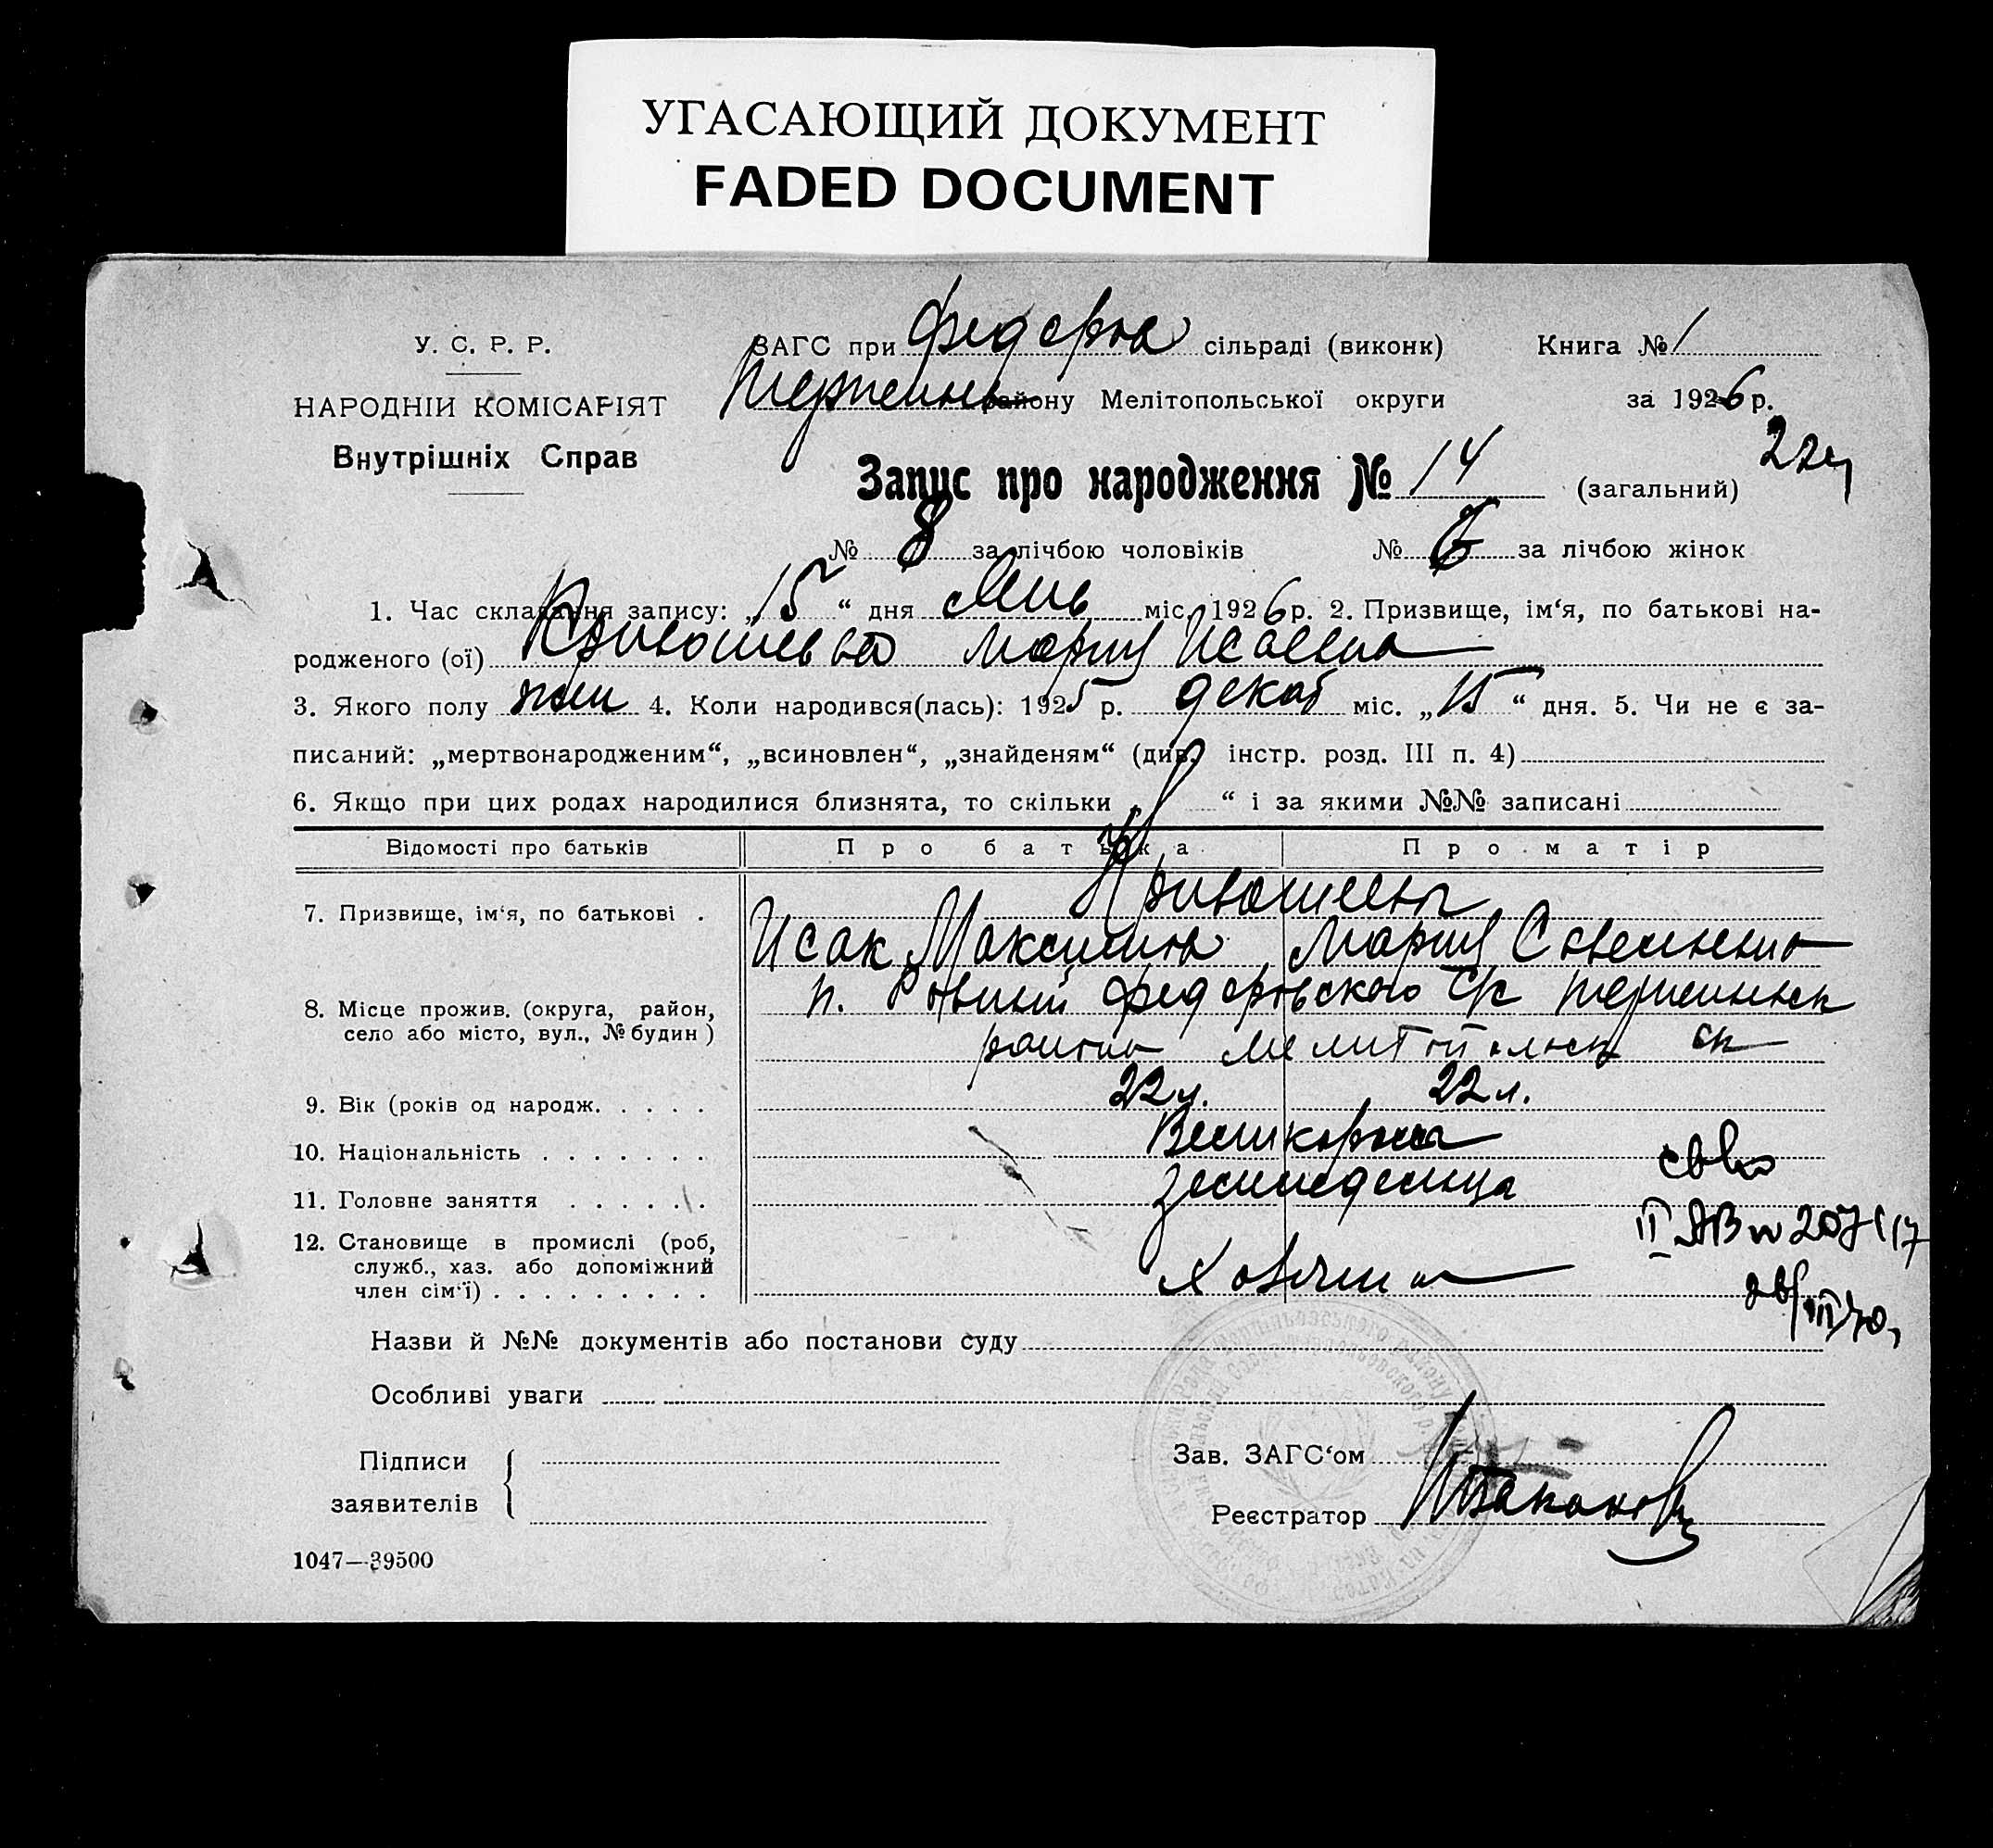 УГАСАЮЩИЙ ДОКУМЕНТ
FADED DOCUMENT
У. С. Р. Р.
НАРОДНІЙ КОМІСАРІЯТ
Внутрішніх Справ
ЗАГС при Федоров сільраді (виконк) Книга № 1
району Мелітопольської округи за 1926 р.
Запис про народження № 14 (загальний)
№ 8 за лічбою чоловіків № 6 за лічбою жінок
1. Час складання запису: „15“ дня міс. 1926 р. 2. Призвище, ім‘я, по батькові на-
родженого (ої) Кривошеева Мария Исаевна
3. Якого полу жен 4. Коли народився(лась): 1925 р. декаб міс. „15“ дня. 5. Чи не є за-
писаний: „мертвонародженим“, „всиновлен“, „знайденям“ (див. інстр. розд. III п. 4)
6. Якщо при цих родах народилися близнята, то скільки „ “ і за якими №№ записані
Відомості про батьків Про батька Про матір
7. Призвище, ім‘я, по батькові . Кривошеевы
Исак Максимов Мария
8. Місце прожив. (округа, район, п. Федоровского с/с
село або місто, вул., № будин) района Мелитопольск
9. Вік (років од народж. . . . . 22 л. 22 л.
10. Національність . . . . . . . Великороссы
11. Головне заняття . . . . . . земледельца
12. Становище в промислі (роб,
служб., хаз. або допоміжний
член сім‘ї) . . . . . . . . .
Назви й №№ документів або постанови суду
Особливі уваги
Підписи
заявителів
Зав. ЗАГС‘ом
Реєстратор
1047—39500